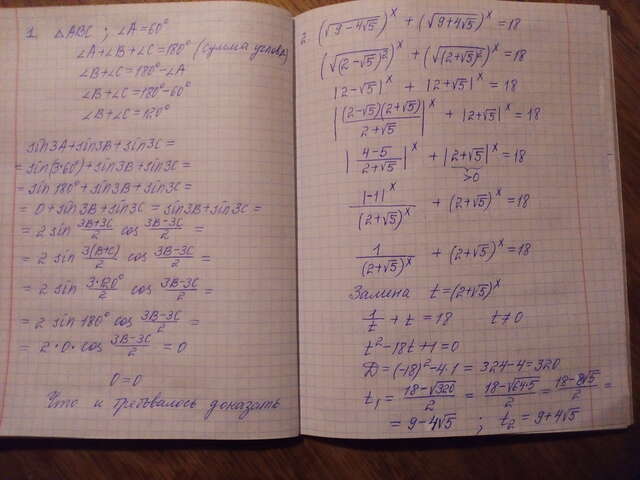 1. △ABC ; ∠A=60°
∠A+∠B+∠C=180° (сумма углов)
∠B+∠C=180°-∠A
∠B+∠C=180°-60°
∠B+∠C=120°
sin3A+sin3B+sin3C=
=sin(3·60)+sin3B+sin3C=
=sin180°+sin3B+sin3C=
=0+sin3B+sin3C=sin3B+sin3C=
=2 sin (3B+3C)/2 cos (3B-3C)/2 =
=2 sin 3(B+C)/2 cos (3B-3C)/2 =
=2 sin 3·120°/2 cos (3B-3C)/2 =
=2 sin 180° cos (3B-3C)/2 =
=2·0·cos (3B-3C)/2 = 0
0=0
Что и требовалось доказать
2. (√(9-4√5))^x + (√(9+4√5))^x = 18
(√((2-√5)²))^x + (√((2+√5)²))^x = 18
|2-√5|^x + |2+√5|^x = 18
|(2-√5)(2+√5)/(2+√5)|^x + |2+√5|^x = 18
|(4-5)/(2+√5)|^x + |2+√5|^x = 18
>0
|-1|^x/(2+√5)^x + (2+√5)^x = 18
1/(2+√5)^x + (2+√5)^x = 18
Замена t=(2+√5)^x
1/t + t = 18 t≠0
t²-18t+1=0
D=(-18)²-4·1=324-4=320
t₁ = (18-√320)/2 = (18-√(64·5))/2 = (18-8√5)/2 =
= 9-4√5 ; t₂ = 9+4√5